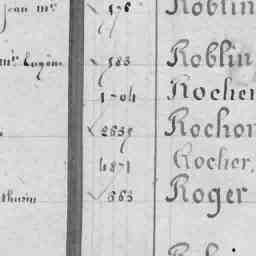 Jean Mie 576 Roblin
mie Eugène 583 Roblin
1704 Rocher
2639 Rochon
4871 Rocher,
thurin 663 Roger